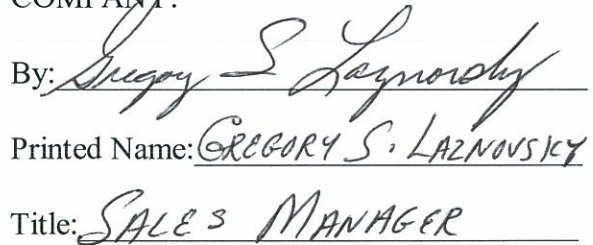 COMPANY:
By: Gregory S Laznovsky
Printed Name: GREGORY S. LAZNOVSKY
Title: SALES MANAGER